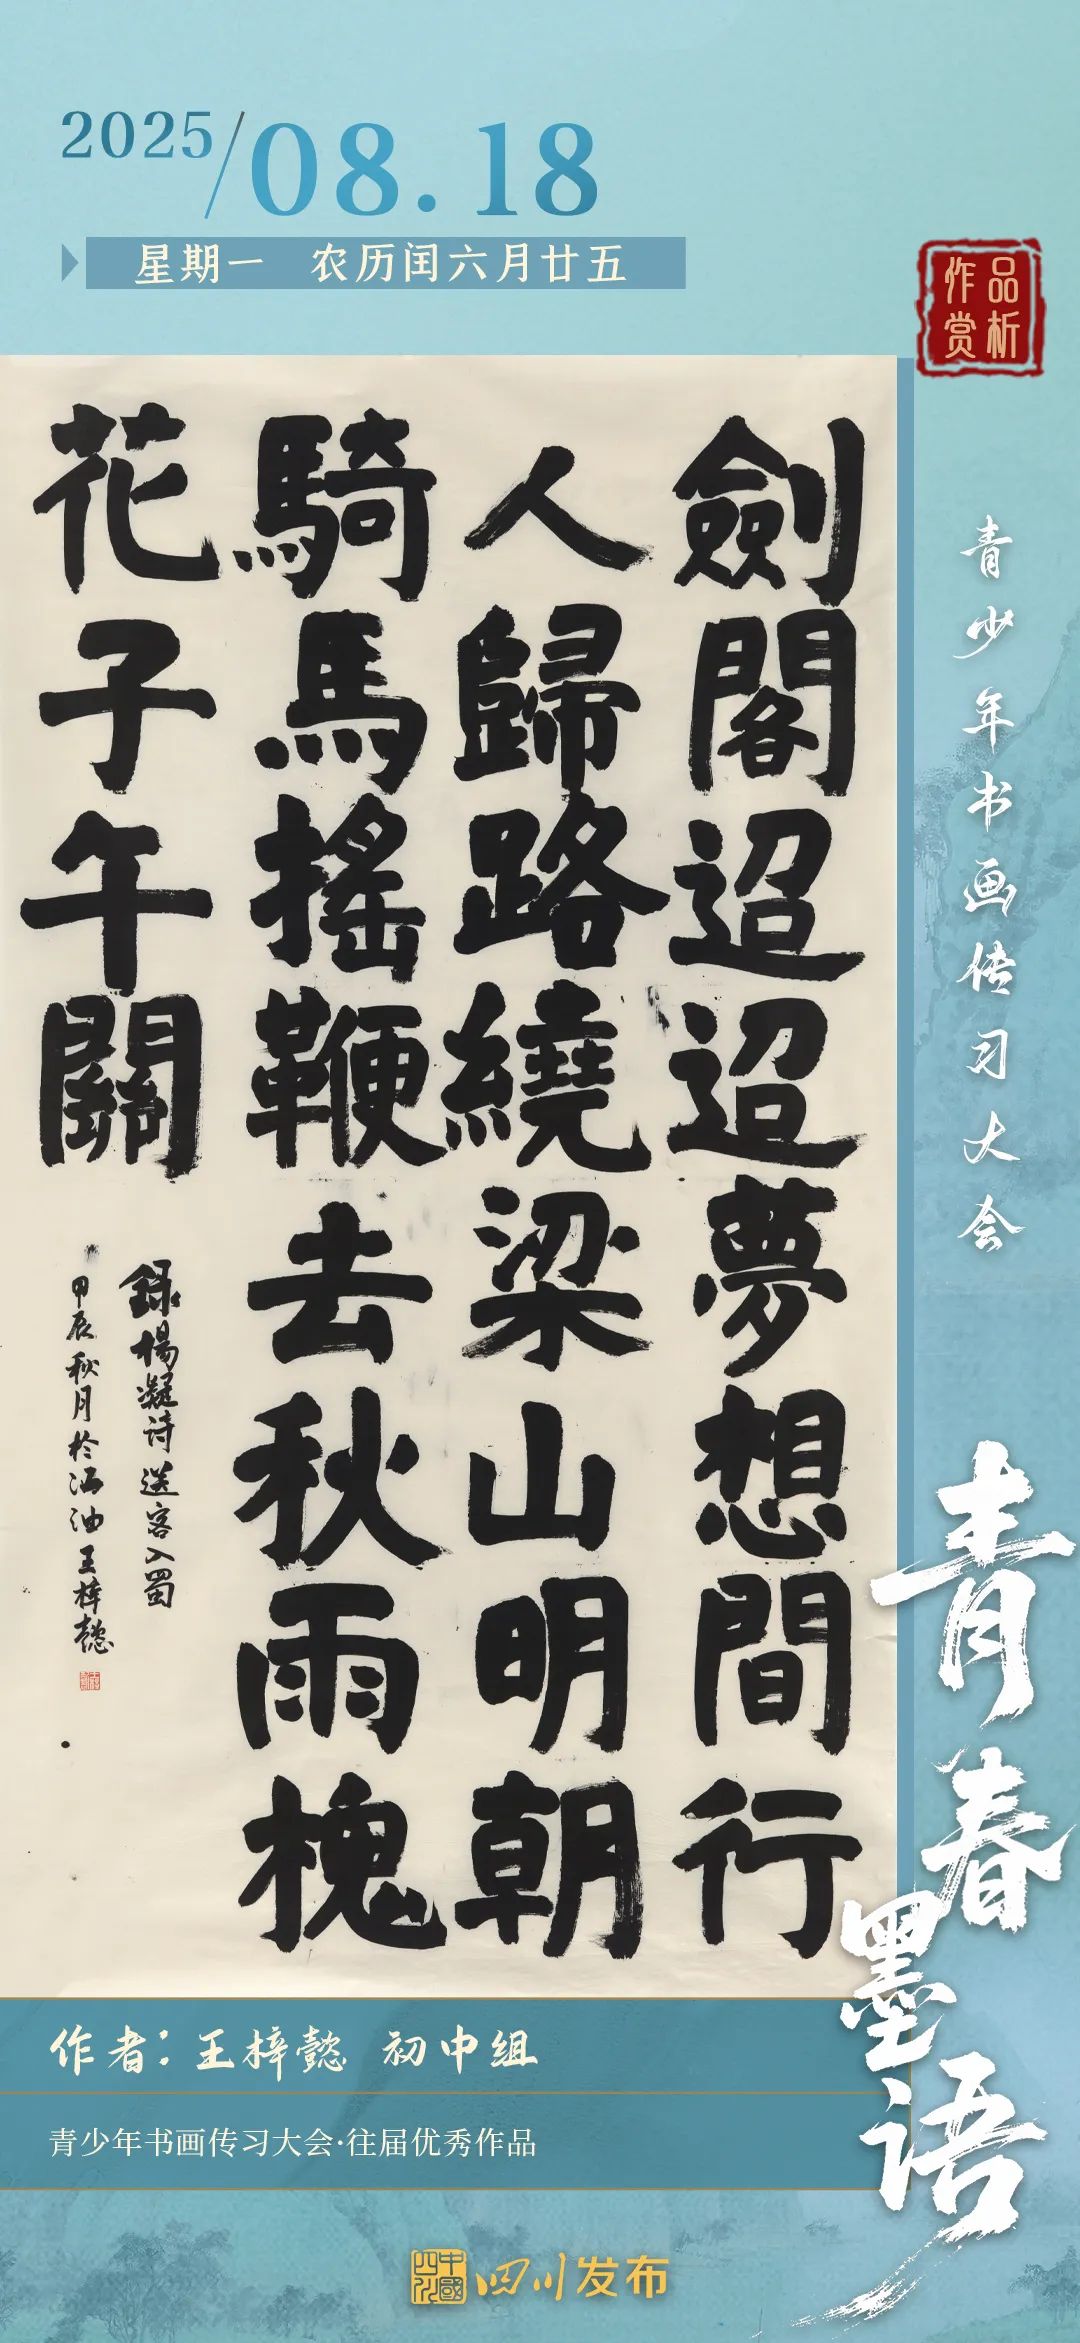 2025/08.18
星期一 农历闰六月廿五
作品
赏析
劍閣迢迢夢想間行
人歸路繞梁山明朝
騎馬搖鞭去秋雨槐
花子午關
錄楊凝诗送客入蜀
甲辰秋月於江油王梓懿
青少年书画传习大会
青春墨语
作者：王梓懿 初中组
青少年书画传习大会·往届优秀作品
中國四川
四川发布